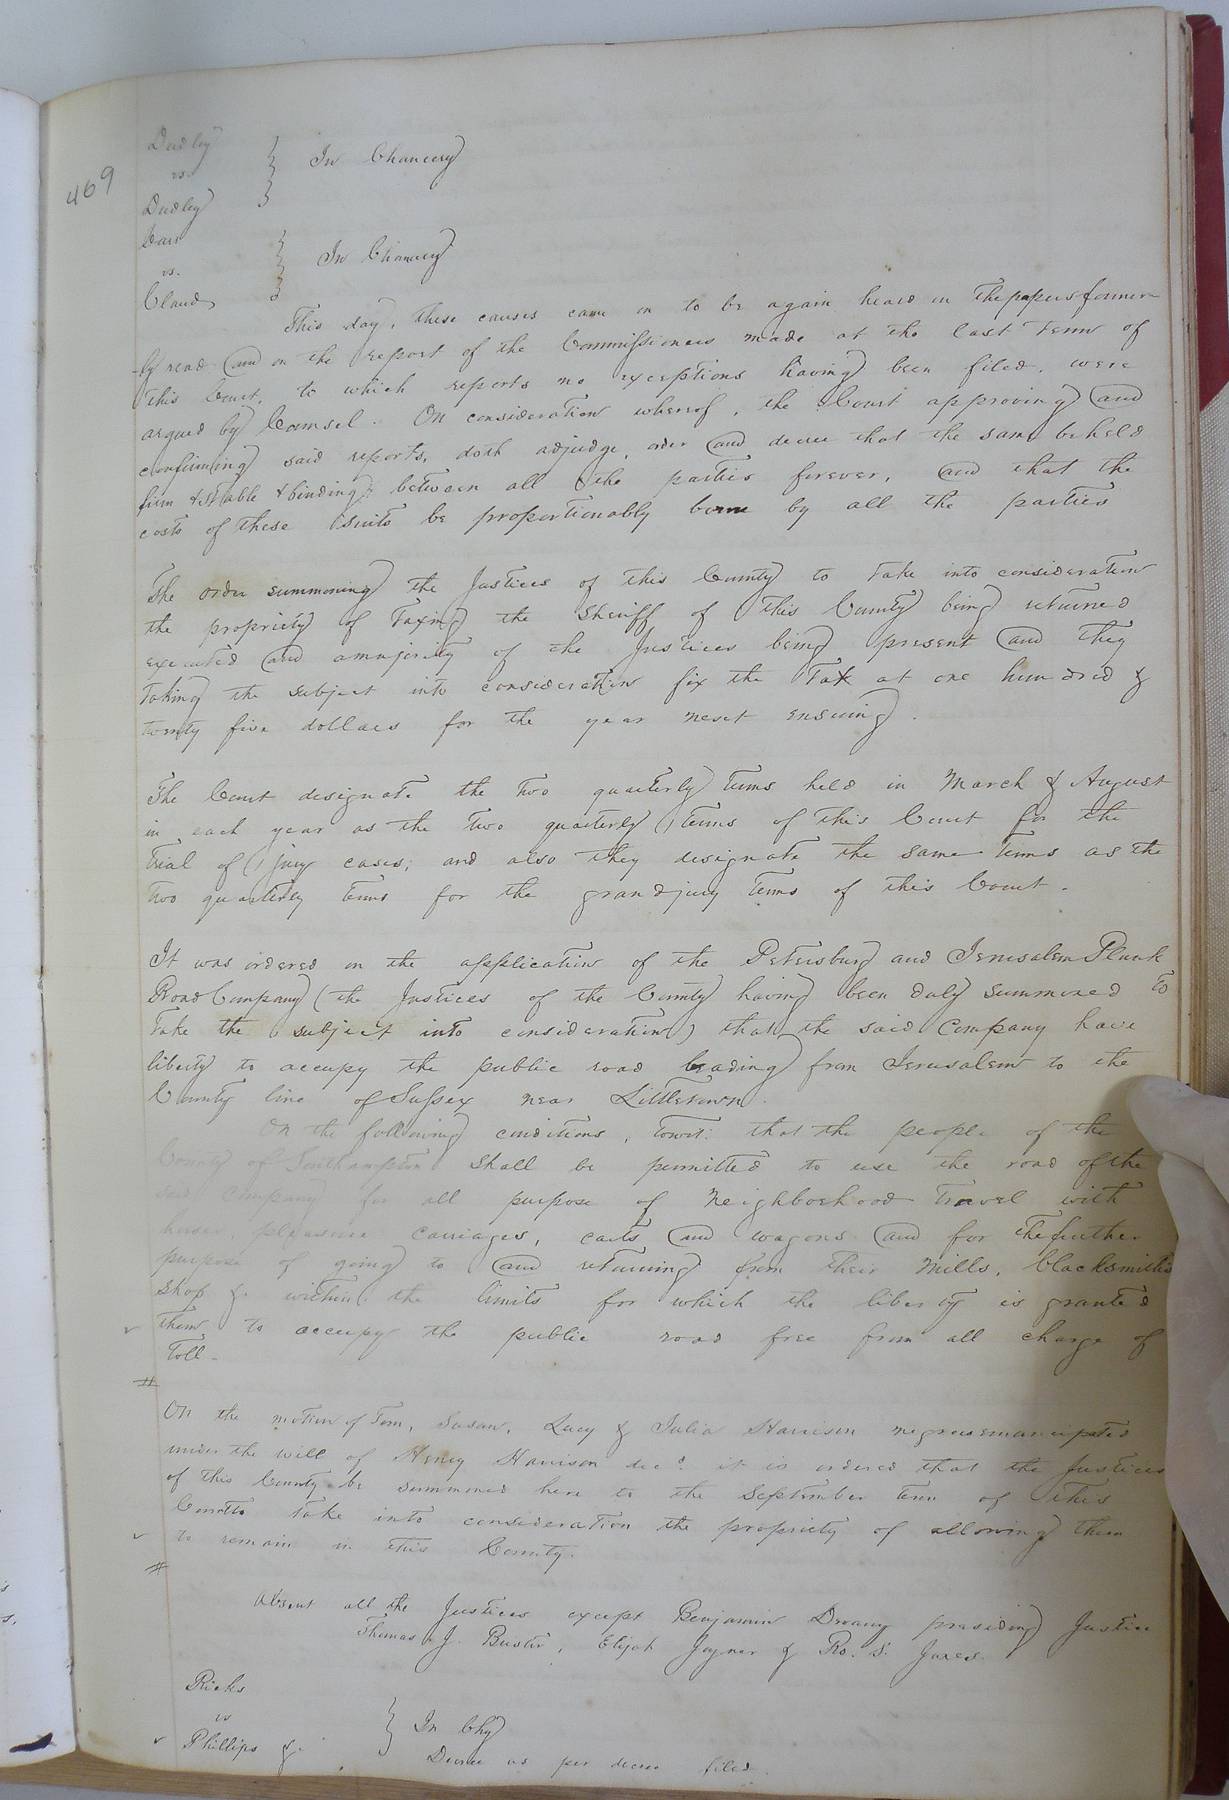 469
Dudley
vs.
Dudley
In Chancery
Carr
vs.
Claud
In Chancery
This day, these causes came on to be again heard on the papers former-
-ly read and on the report of the Commissioners made at the last term of
this Court, to which reports no exceptions having been filed, were
argued by Counsel. On consideration whereof, the Court approving and
confirming said reports, doth adjudge, order and decree that the same be held
firm & stable & binding between all the parties forever, and that the
costs of these suits be proportionably borne by all the parties
The order summoning the Justices of this County to take into consideration
the propriety of taxing the Sheriff of this County being returned
executed and a majority of the Justices being present and they
taking the subject into consideration fix the Tax at one hundred &
twenty five dollars for the year next ensuing.
The Court designate the two quarterly terms held in March & August
in each year as the two quarterly terms of this Court for the
trial of jury cases; and also they designate the same terms as the
two quarterly terms for the grand jury terms of this Court.
It was ordered on the application of the Petersburg and Jerusalem Plank
Road Company (the Justices of the County having been duly summoned to
take the subject into consideration) that the said Company have
liberty to occupy the public road leading from Jerusalem to the
County line of Sussex near Littletown.
On the following conditions, towit: that the people of the
County of Southampton shall be permitted to use the road of the
said Company for all purpose of neighborhood travel with
horses, pleasure carriages, carts and wagons and for the further
purpose of going to and returning from their mills, blacksmiths
shop &c within the limits for which the liberty is granted
them to occupy the public road free from all charge of
toll.
On the motion of Tom, Susan, Lucy & Julia Harrison negroes emancipated
under the will of Henry Harrison decd. it is ordered that the Justices
of this County be summoned here to the September term of this
Court to take into consideration the propriety of allowing them
to remain in this County.
Absent all the Justices except Benjamin Devany presiding Justice
Thomas J. Bustin, Elijah Joyner & Ro. S. Jones.
Ricks
vs
Phillips &c.
In Chy
Decree as per decree filed.